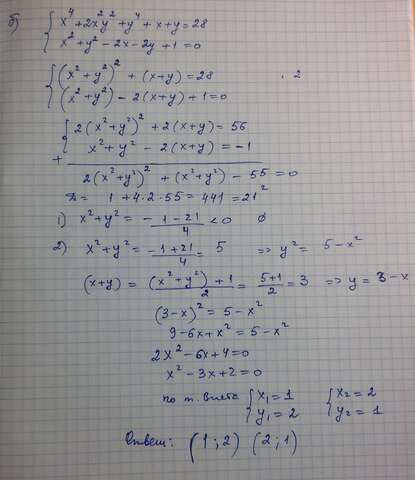 б) { x⁴ + 2x²y² + y⁴ + x + y = 28
x² + y² - 2x - 2y + 1 = 0
{ (x² + y²)² + (x + y) = 28 · 2
(x² + y²) - 2(x + y) + 1 = 0
{ 2(x² + y²)² + 2(x + y) = 56
+ x² + y² - 2(x + y) = -1
2(x² + y²)² + (x² + y²) - 55 = 0
D = 1 + 4 · 2 · 55 = 441 = 21²
1) x² + y² = (-1 - 21)/4 < 0 ∅
2) x² + y² = (-1 + 21)/4 = 5 => y² = 5 - x²
(x + y) = ((x² + y²) + 1)/2 = (5 + 1)/2 = 3 => y = 3 - x
(3 - x)² = 5 - x²
9 - 6x + x² = 5 - x²
2x² - 6x + 4 = 0
x² - 3x + 2 = 0
по т. Виета { x₁ = 1 { x₂ = 2
y₁ = 2 y₂ = 1
Ответ: (1; 2) (2; 1)